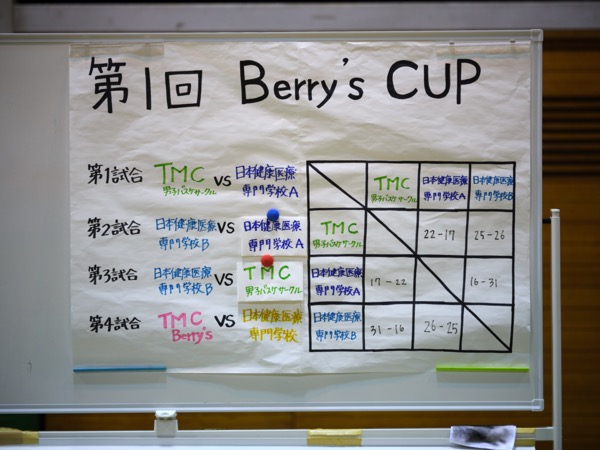 第1回 Berry's CUP
第1試合 TMC 男子バスケサークル VS 日本健康医療専門学校A
第2試合 日本健康医療専門学校B VS 日本健康医療専門学校A
第3試合 日本健康医療専門学校B VS TMC 男子バスケサークル
第4試合 TMC Berry's VS 日本健康医療専門学校
TMC 男子バスケサークル 日本健康医療専門学校A 日本健康医療専門学校B
TMC 男子バスケサークル 22-17 25-26
日本健康医療専門学校A 17-22 16-31
日本健康医療専門学校B 31-16 26-25